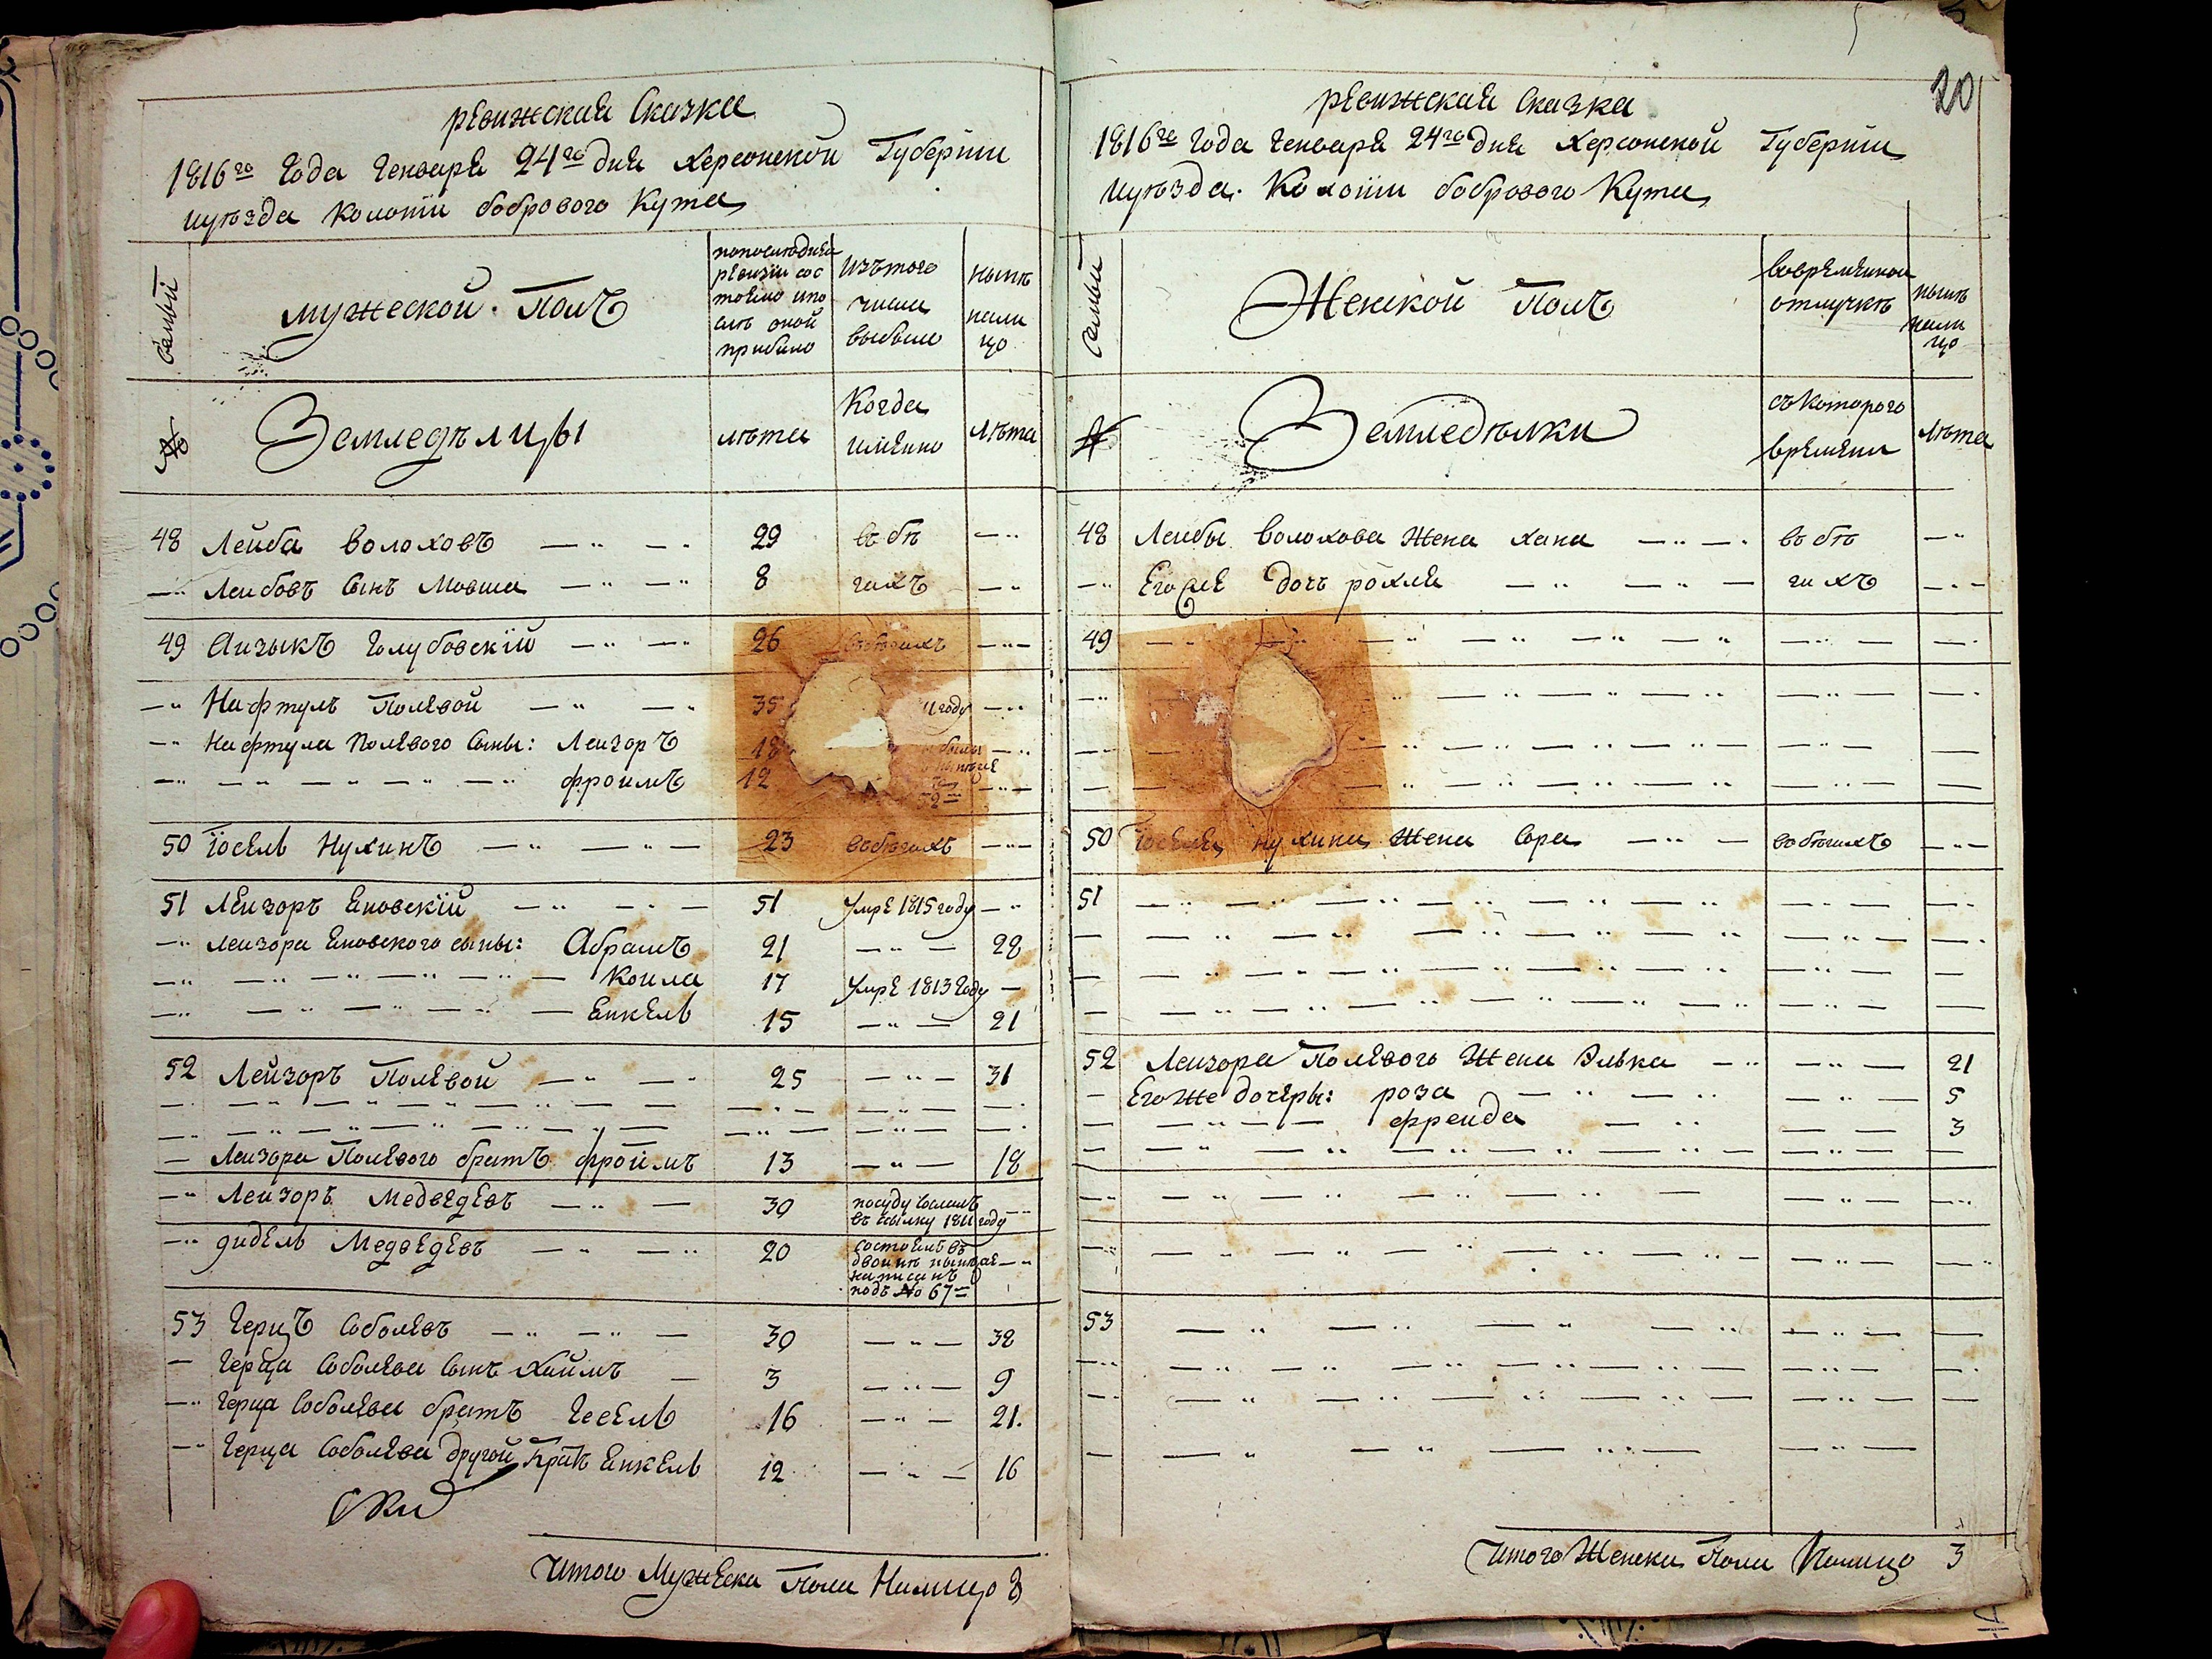 ревижская Сказка
1816го Года Генваря 24го дня Херсонской Губернии
иуезда Колонїи боброваго Кута
Семьи
мужеской Полъ
попоследней
ревизїи сос
тояло ипо
сле оной
прибыло
Изътого
числа
выбыло
ныне
нали
цо
№
Земледелцы
лета
Когда
имянно
Лета
48 Лейба Волоховъ — " — " 29 въ бе — "
— " Леибовъ Сынъ Мовша — " — " 8 гахъ — "
49 Аизыкъ Голубовскїй — " — " 26 въбегахъ — " —
— " Нафтулъ Полевой — " — " 35 году — "
— " Нафтула Полевого Сыны: Леизоръ 18 — "
— " — " — " — " — " фроимъ 12 52 — " —
50 Їосель Нухинъ — " — " — 23 вобегахъ — " —
51 Леизоръ Еновскїй — " — " — 51 Умре 1815 году — "
— " Леизора Еновского сыны: Абрамъ 21 — " — 28
— " — " — " — " — " — Коила 17 Умре 1813 Году —
— " — " — " — " — " — Енкель 15 — " — 21
52 Лейзоръ Полевой — " — " 25 — " — 31
— " — " — " — " — " — — " — — " — — "
— " — " — " — " — " — — " — — " — — "
— Леизора Полевого братъ фроимъ 13 — " — 18
— " Леизоръ Медведевъ — " — 30 посуду Сосланъ
въ Ссылку 1811 году — "
— " Дидель Медведевъ — " — " 20 состоялъ въ
двоине ныне же — "
написанъ
подъ № 67
53 Герцъ Соболевъ — " — " — 30 — " — 38
— Герца Соболева Сынъ Хаимъ — 3 — " — 9
— " Герца Соболева братъ Гесель 16 — " — 21.
— " Герца Соболева другой Братъ Енкель 12 — " — 16
Итого Мужеска Пола Налицо 8
20
ревижская Сказка
1816го Года Генваря 24го дня Херсонской Губернии
иуезда. Колонїи боброваго Кута
Семьи
Женской Полъ
вовременной
отлучке
ныне
нали
цо
№
Земледелки
съ Котораго
времяни
лета
48 Леибы Волохова Жена Хана — " — " въ бе — "
— " Его же Дочь рохля — " — " — гахъ — " —
49 — " — " — " — " — " — " — " — — "
— " — " — " — " — " — " — " — — "
— " — " — " — " — " — " — " — —
— " — " — " — " — " — " — " — —
50 Їоселя Нухина Жена Сора — " — вобегахъ — " —
51 — " — " — " — " — " — " — " — — "
— — " — " — " — " — " — " — — "
— — " — " — " — " — " — " — —
— — " — " — " — " — " — " — —
52 Леизора Полевого Жена Элька — " — " — 21
— Его же дочеры: роза — " — " — " — 5
— — " — " — фреида — " — — 3
— — " — " — " — " — " — " — — —
— " — " — " — " — " — — " — — "
— " — " — " — " — " — " — — " — — "
53 — " — " — " — " — " — —
— " — " — " — " — " — " — " — — "
— " — " — " — " — " — " — " — — "
— — " — " — " — — " —
Итого Женска Пола Налицо 3